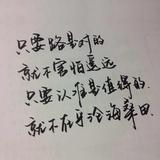 只要路是对的
就不害怕遥远
只要认准是值得的.
就不在乎沧海桑田